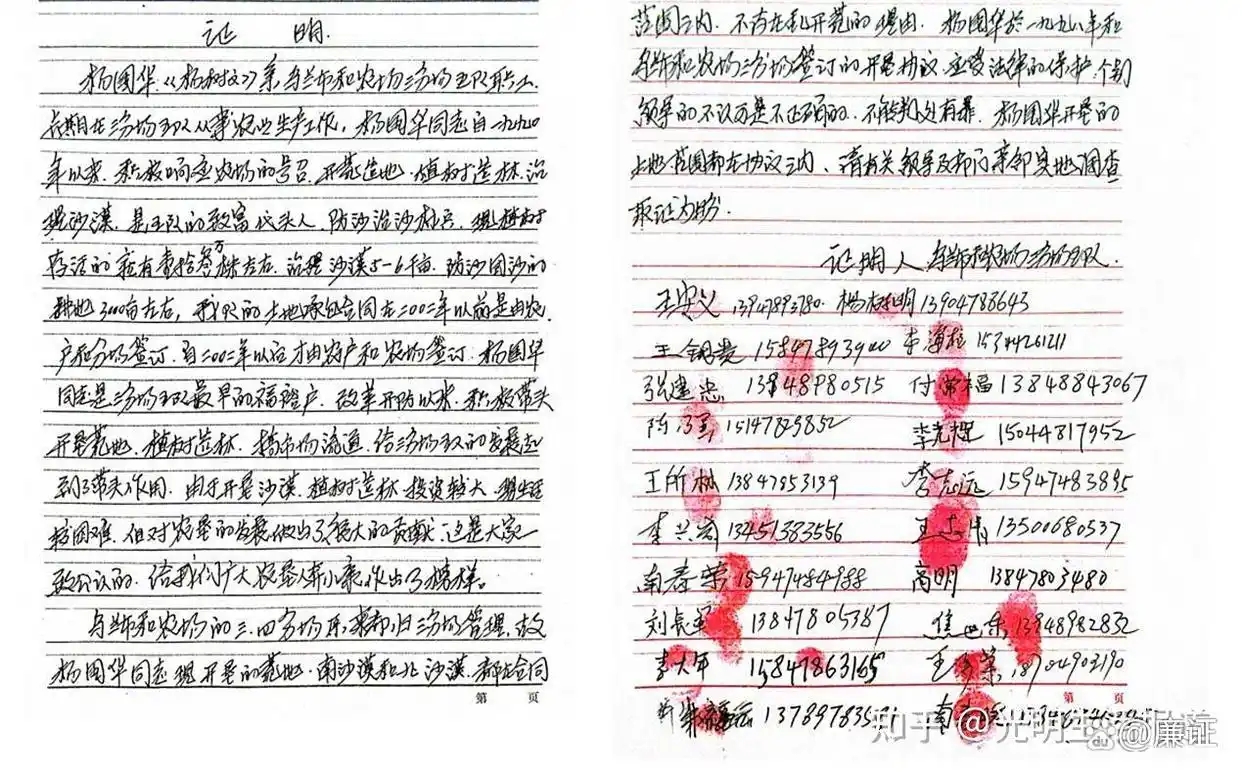 证 明
杨国华《杨树文》系乌兰布和农场三分场五队职工
长期在三分场五队从事农业生产工作，杨国华同志自一九九〇
年以来，积极响应农场的号召，开荒造地，植树造林，治
理沙漠，是五队的致富代头人，防沙治沙标兵，现植树
存活的就有壹拾叁万株左右，治理沙漠5-6千亩，防沙固沙的
耕地3000亩左右，我队的土地承包合同在二〇〇二年以前是由农
户和分场签订，自二〇〇二年以后才由农户和农场签订，杨国华
同志是三分场五队最早的福裕户，改革开放以来，积极带头
开垦荒地，植树造林，搞市场流通，给三分场五队的发展起
到了带头作用，由于开垦沙漠，植树造林投资较大，现生活
较困难，但对农垦的发展做出了很大的贡献，这是大家
公认的，给我们广大农垦人奔小康作出了榜样。
乌兰布和农场的三、四分场历来都归三分场管理，故
杨国华同志现开垦的荒地，南沙漠和北沙漠，都在合同
第 页
范围之内，不存在乱开荒的理由，杨国华於一九九八年和
乌兰布和农场三分场签订的开垦协议，应受法律的保护，个别
领导的不认可是不正确的，不能判处有罪，杨国华开垦的
土地范围都在协议之内，请有关领导及部门亲邻实地调查
取证为盼.
证明人 乌兰布和农场三分场五队
王安义 杨树明 13904788643
王钢贵
张建忠 13848980515 付常福 13848843067
陈 15147829852 李光辉 15044817952
王所林 13847853139 李志远 15947483895
李兰 13451383556 王 13500680537
南春荣 15947484988 高明 13847803480
刘长 13847805387 焦 13948982832
李大年 15847863165 王 荣 18904902190
13789783591 南
第 页
知乎 @光明
Baidu @廉证